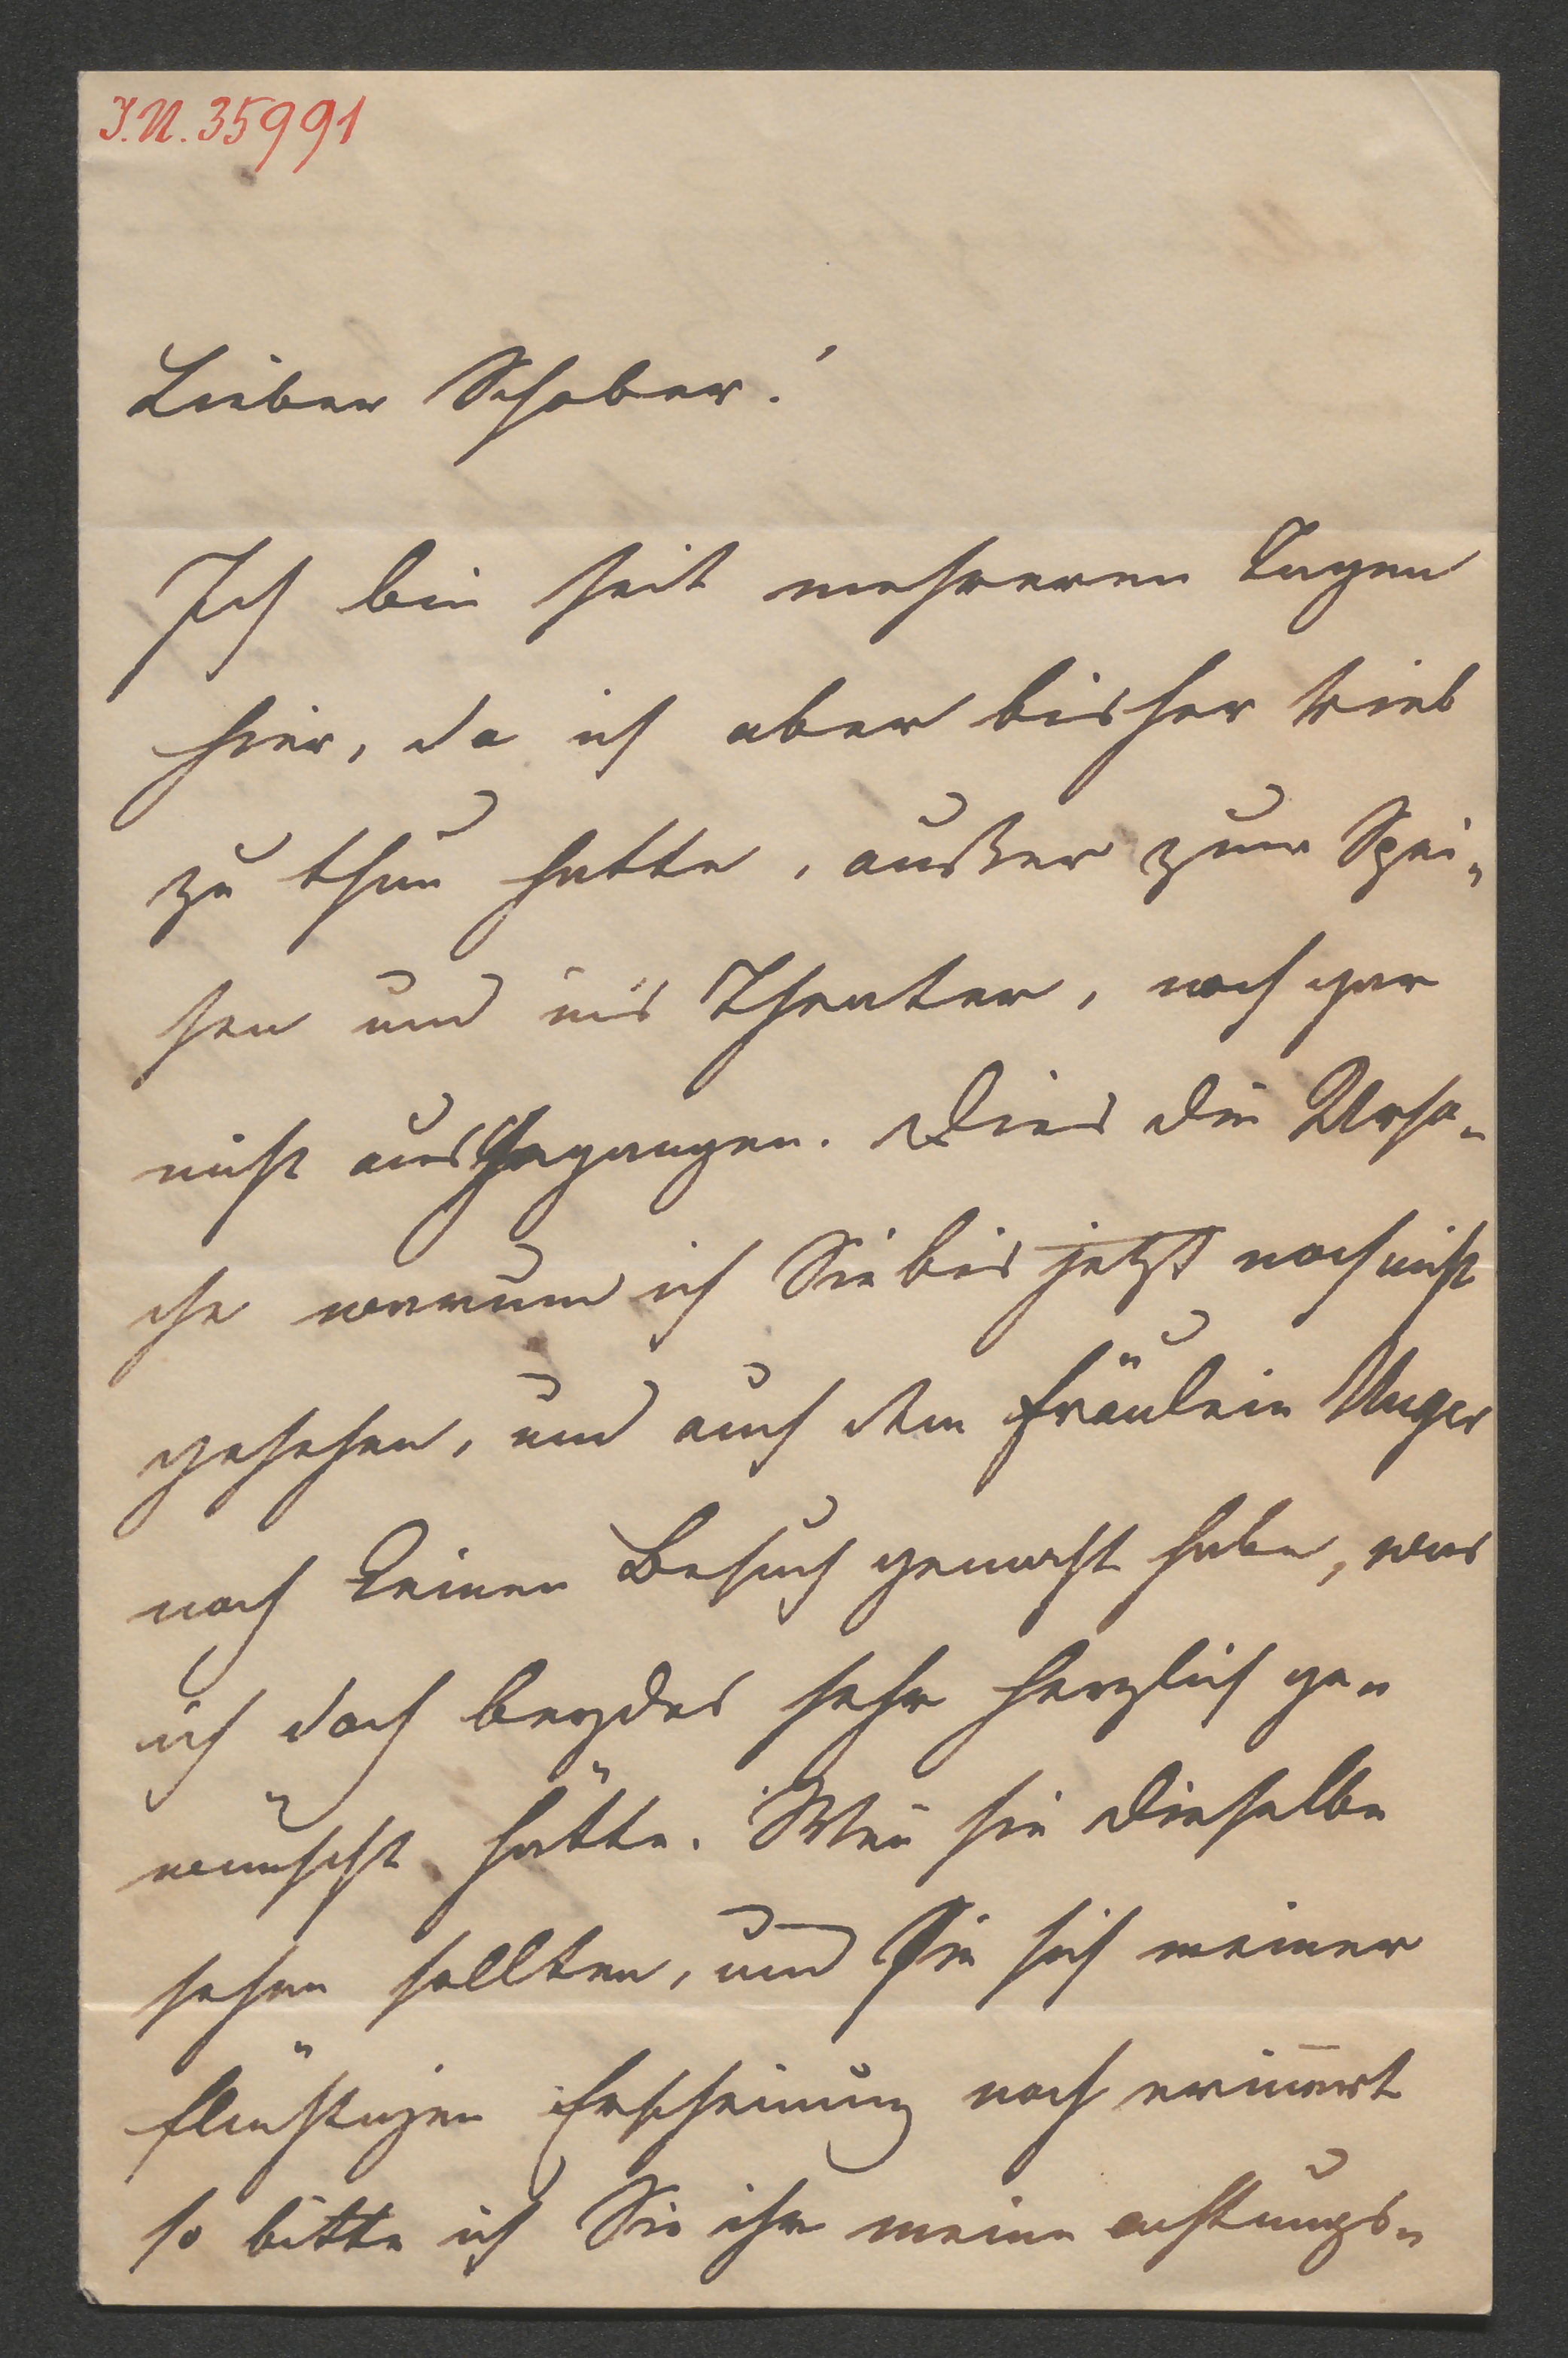 I.N. 35991
Lieber Schober!
Ich bin seit mehreren Tagen
hier, da ich aber bisher viel
zu thun hatte, außer zum Spei-
sen und ins Theater, noch gar
nicht ausgegangen. Dies die Ursa-
che warum ich Sie bis jetzt noch nicht
gesehen, und auch dem Fräulein Unger
noch keinen Besuch gemacht habe, was
ich doch beydes sehr herzlich ge-
wünscht hätte. Wen̄ sie dieselbe
sehen sollten, und Sie sich meiner
flüchtigen Erscheinung noch erin̄ert
so bitte ich Sie ihr meine achtungs-